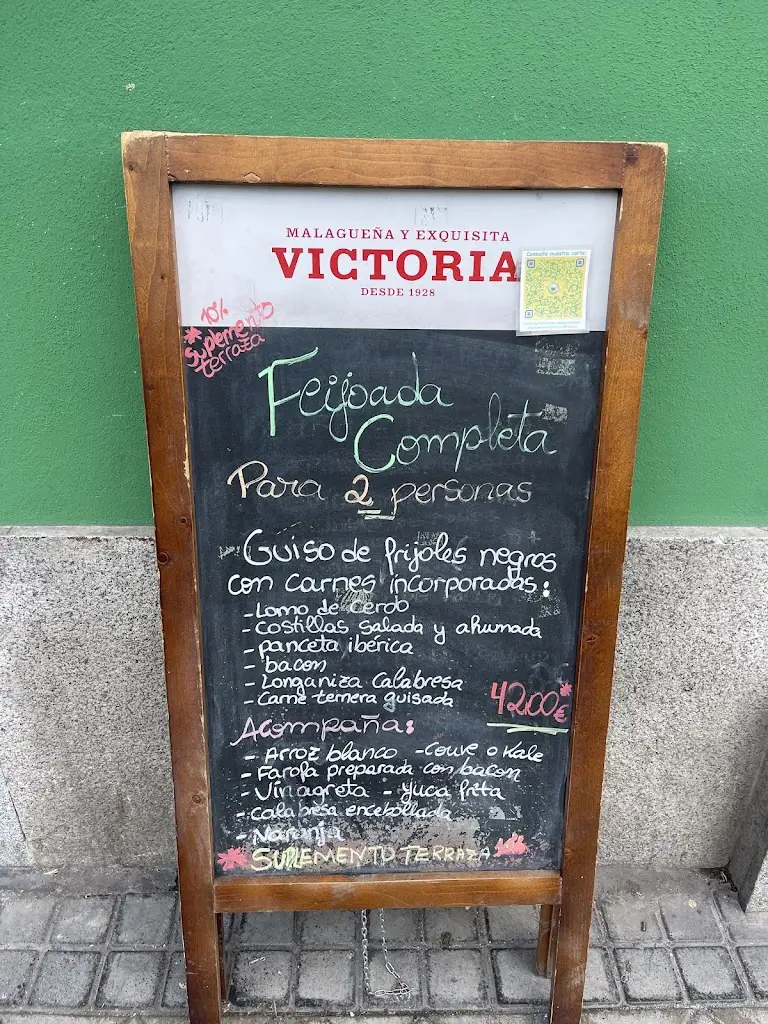 MALAGUEÑA Y EXQUISITA
VICTORIA
DESDE 1928
Consulta nuestra carta:
10%
* Suplemento
terraza
Feijoada
Completa
Para 2 personas
Guiso de frijoles negros
con carnes incorporadas:
- Lomo de cerdo
- Costillas salada y ahumada
- panceta ibérica
- bacon
- Longaniza Calabresa
- Carne ternera guisada
42,00€*
Acompaña:
- Arroz blanco - Couve o Kale
- Farofa preparada con bacon
- Vinagreta - yuca frita
- Calabresa encebollada
- Naranja
* SUPLEMENTO TERRAZA